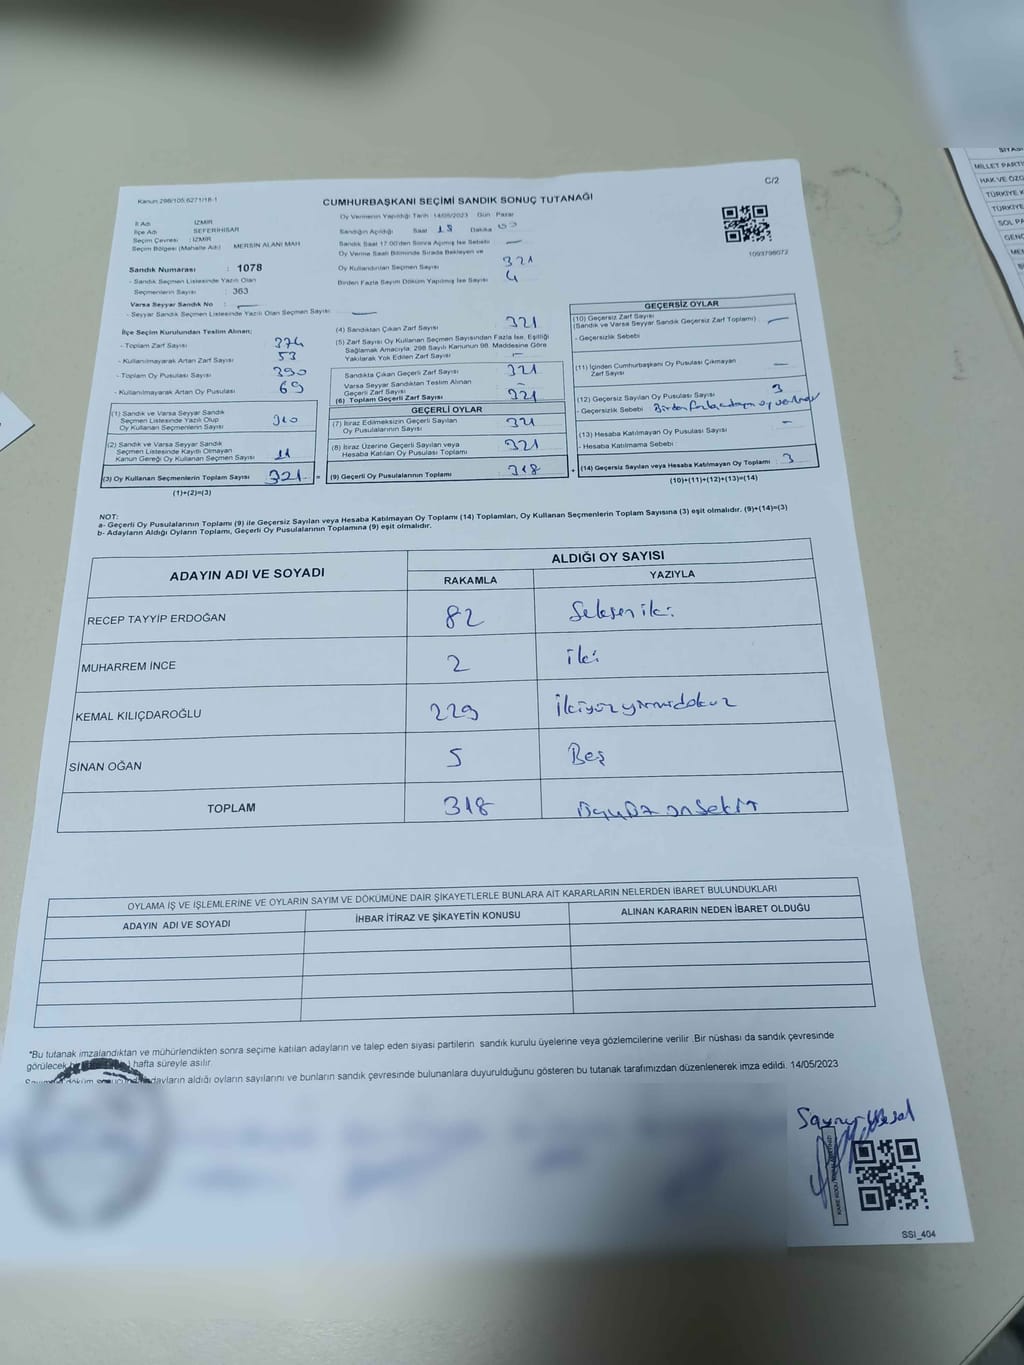 C/2
Kanun 298/105,6271/18-1
CUMHURBAŞKANI SEÇİMİ SANDIK SONUÇ TUTANAĞI
İl Adı İZMİR
İlçe Adı SEFERİHİSAR
Seçim Çevresi : İZMİR
Seçim Bölgesi (Mahalle Adı) MERSİN ALANI MAH
Sandık Numarası : 1078
- Sandık Seçmen Listesinde Yazılı Olan
Seçmenlerin Sayısı : 363
Varsa Seyyar Sandık No :
- Seyyar Sandık Seçmen Listesinde Yazılı Olan Seçmen Sayısı
Oy Vermenin Yapıldığı Tarih : 14/05/2023 Gün : Pazar
Sandığın Açıldığı Saat 18 Dakika
Sandık Saat 17.00'den Sonra Açılmış İse Sebebi :
Oy Verme Saati Bitiminde Sırada Bekleyen ve
Oy Kullandırılan Seçmen Sayısı 321
Birden Fazla Sayım Döküm Yapılmış İse Sayısı : 4
1093798072
İlçe Seçim Kurulundan Teslim Alınan;
- Toplam Zarf Sayısı 374
- Kullanılmayarak Artan Zarf Sayısı 53
- Toplam Oy Pusulası Sayısı 390
- Kullanılmayarak Artan Oy Pusulası 69
(1) Sandık ve Varsa Seyyar Sandık
Seçmen Listesinde Yazılı Olup
Oy Kullanan Seçmenlerin Sayısı 310
(2) Sandık ve Varsa Seyyar Sandık
Seçmen Listesinde Kaydı Olmayan
Kanun Gereği Oy Kullanan Seçmen Sayısı 11
(3) Oy Kullanan Seçmenlerin Toplam Sayısı 321 =
(1)+(2)=(3)
(4) Sandıktan Çıkan Zarf Sayısı 321
(5) Zarf Sayısı Oy Kullanan Seçmen Sayısından Fazla İse, Eşitliği
Sağlamak Amacıyla; 298 Sayılı Kanunun 98. Maddesine Göre
Yakılarak Yok Edilen Zarf Sayısı
Sandıkta Çıkan Geçerli Zarf Sayısı 321
Varsa Seyyar Sandıktan Teslim Alınan
Geçerli Zarf Sayısı
(6) Toplam Geçerli Zarf Sayısı 321
GEÇERLİ OYLAR
(7) İtiraz Edilmeksizin Geçerli Sayılan
Oy Pusulalarının Sayısı 321
(8) İtiraz Üzerine Geçerli Sayılan veya
Hesaba Katılan Oy Pusulası Toplamı 321
(9) Geçerli Oy Pusulalarının Toplamı 318 +
GEÇERSİZ OYLAR
(10) Geçersiz Zarf Sayısı
(Sandık ve Varsa Seyyar Sandık Geçersiz Zarf Toplamı)
- Geçersizlik Sebebi
(11) İçinden Cumhurbaşkanı Oy Pusulası Çıkmayan
Zarf Sayısı
(12) Geçersiz Sayılan Oy Pusulası Sayısı 3
- Geçersizlik Sebebi Birden fazla adaya oy
(13) Hesaba Katılmayan Oy Pusulası Sayısı -
- Hesaba Katılmama Sebebi
(14) Geçersiz Sayılan veya Hesaba Katılmayan Oy Toplamı 3
(10)+(11)+(12)+(13)=(14)
NOT:
a- Geçerli Oy Pusulalarının Toplamı (9) ile Geçersiz Sayılan veya Hesaba Katılmayan Oy Toplamı (14) Toplamları, Oy Kullanan Seçmenlerin Toplam Sayısına (3) eşit olmalıdır. (9)+(14)=(3)
b- Adayların Aldığı Oyların Toplamı, Geçerli Oy Pusulalarının Toplamına (9) eşit olmalıdır.
ADAYIN ADI VE SOYADI
ALDIĞI OY SAYISI
RAKAMLA YAZIYLA
RECEP TAYYİP ERDOĞAN 82 Seksen iki
MUHARREM İNCE 2 iki
KEMAL KILIÇDAROĞLU 229 ikiyüzyirmidokuz
SİNAN OĞAN 5 Beş
TOPLAM 318 üçyüz onsekiz
OYLAMA İŞ VE İŞLEMLERİNE VE OYLARIN SAYIM VE DÖKÜMÜNE DAİR ŞİKAYETLERLE BUNLARA AİT KARARLARIN NELERDEN İBARET BULUNDUKLARI
ADAYIN ADI VE SOYADI İHBAR İTİRAZ VE ŞİKAYETİN KONUSU ALINAN KARARIN NEDEN İBARET OLDUĞU
*Bu tutanak imzalandıktan ve mühürlendikten sonra seçime katılan adayların ve talep eden siyasi partilerin sandık kurulu üyelerine veya gözlemcilerine verilir .Bir nüshası da sandık çevresinde
görülecek hafta süreyle asılır.
döküm adayların aldığı oyların sayılarını ve bunların sandık çevresinde bulunanlara duyurulduğunu gösteren bu tutanak tarafımızdan düzenlenerek imza edildi. 14/05/2023
SSI_404
MİLLET PARTİ
HAK VE ÖZG
TÜRKİYE K
TÜRKİYE
SOL PA
GENÇ